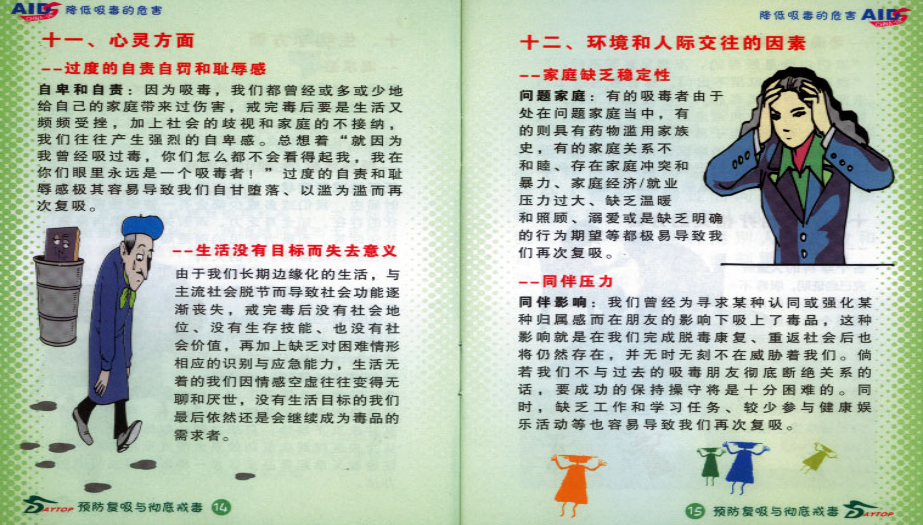 AIDS
降低吸毒的危害
十一、心灵方面
--过度的自责自罚和耻辱感
自卑和自责：因为吸毒，我们都曾经或多或少地
给自己的家庭带来过伤害，戒完毒后要是生活又
频频受挫，加上社会的歧视和家庭的不接纳，
我们往往产生强烈的自卑感。总想着“就因为
我曾经吸过毒，你们怎么都不会看得起我，我在
你们眼里永远是一个吸毒者！”过度的自责和耻
辱感极其容易导致我们自甘堕落、以滥为滥而再
次复吸。
--生活没有目标而失去意义
由于我们长期边缘化的生活，与
主流社会脱节而导致社会功能逐
渐丧失，戒完毒后没有社会地
位、没有生存技能、也没有社
会价值，再加上缺乏对困难情形
相应的识别与应急能力，生活无
着的我们因情感空虚往往变得无
聊和厌世，没有生活目标的我们
最后依然还是会继续成为毒品的
需求者。
DAYTOP 预防复吸与彻底戒毒 14
降低吸毒的危害 AIDS
十二、环境和人际交往的因素
--家庭缺乏稳定性
问题家庭：有的吸毒者由于
处在问题家庭当中，有
的则具有药物滥用家族
史，有的家庭关系不
和睦、存在家庭冲突和
暴力、家庭经济/就业
压力过大、缺乏温暖
和照顾、溺爱或是缺乏明确
的行为期望等都极易导致我
们再次复吸。
--同伴压力
同伴影响：我们曾经为寻求某种认同或强化某
种归属感而在朋友的影响下吸上了毒品，这种
影响就是在我们完成脱毒康复、重返社会后也
将仍然存在，并无时无刻不在威胁着我们。倘
若我们不与过去的吸毒朋友彻底断绝关系的
话，要成功的保持操守将是十分困难的。同
时，缺乏工作和学习任务、较少参与健康娱
乐活动等也容易导致我们再次复吸。
15 预防复吸与彻底戒毒 DAYTOP